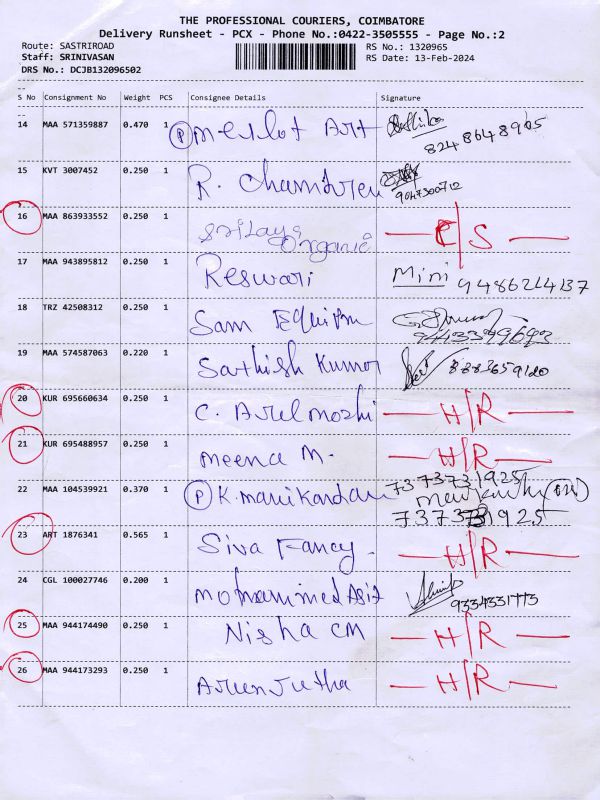 THE PROFESSIONAL COURIERS, COIMBATORE
Delivery Runsheet - PCX - Phone No.:0422-3505555 - Page No.:2
Route: SASTRIROAD RS No.: 1320965
Staff: SRINIVASAN RS Date: 13-Feb-2024
DRS No.: DCJB132096502
--
S No Consignment No Weight PCS Consignee Details Signature
--
14 MAA 571359887 0.470 1 (P) Merlot Art
8248648965
15 KVT 3007452 0.250 1 R. Chamdren
9047300712
16 MAA 863933552 0.250 1 Srilaya Organic C/S
17 MAA 943895812 0.250 1 Reswari Mini 9486214137
18 TRZ 42508312 0.250 1 Sam Equipm
19 MAA 574587063 0.220 1 Sathish Kumar 8883659120
20 KUR 695660634 0.250 1 C. Arulmozhi H/R
21 KUR 695488957 0.250 1 meena M. H/R
22 MAA 104539921 0.370 1 (P) K. Manikandan 7373731925
7373731925
23 ART 1876341 0.565 1 Siva Fancy H/R
24 CGL 100027746 0.200 1 Mohammed Asiz
25 MAA 944174490 0.250 1 Nisha CM H/R
26 MAA 944173293 0.250 1 Arunjutha H/R